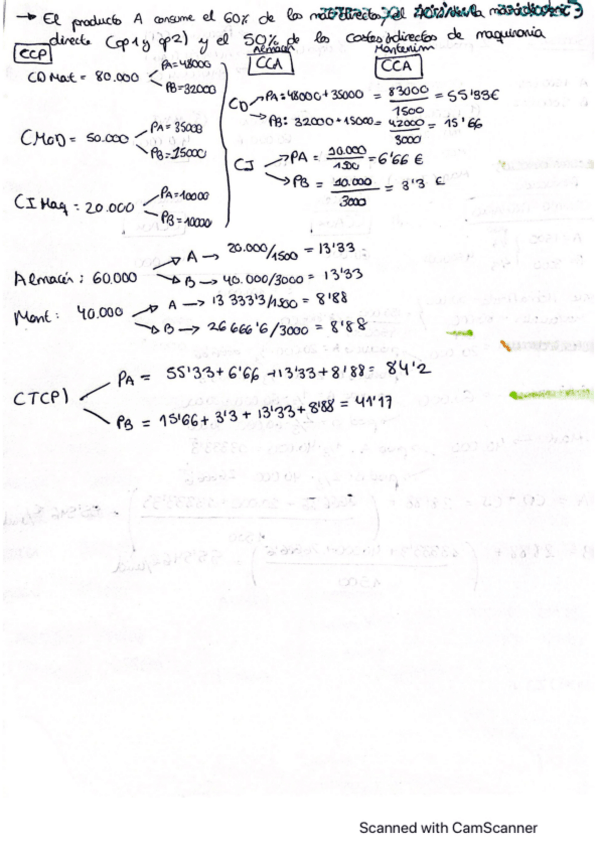 → El producto A consume el 60% de los mat directos, el
directa (op1 y op2) y el 50% de los costes indirectos de maquinaria
CCP
Almacén
CCA
Mantenim
CCA
CD Mat = 80.000
PA=48000
PB=32000
CMOD = 50.000
PA=35000
PB=15000
CI Maq : 20.000
PA=10000
PB=10000
CD
PA:48000+35000 = 83000/1500 = 55'33€
PB: 32000+15000= 42000/3000 = 15'66
CI
PA = 10.000/1500 = 6'66 €
PB = 10.000/3000 = 3'3 €
Almacén : 60.000
A → 20.000/1500 = 13'33
B → 40.000/3000 = 13'33
Mant : 40.000
A → 13 333'3/1500 = 8'88
B → 26 666'6/3000 = 8'88
CTCP)
PA = 55'33+6'66 +13'33+8'88= 84'2
PB = 15'66+3'3 + 13'33+8'88 = 41'17
Scanned with CamScanner